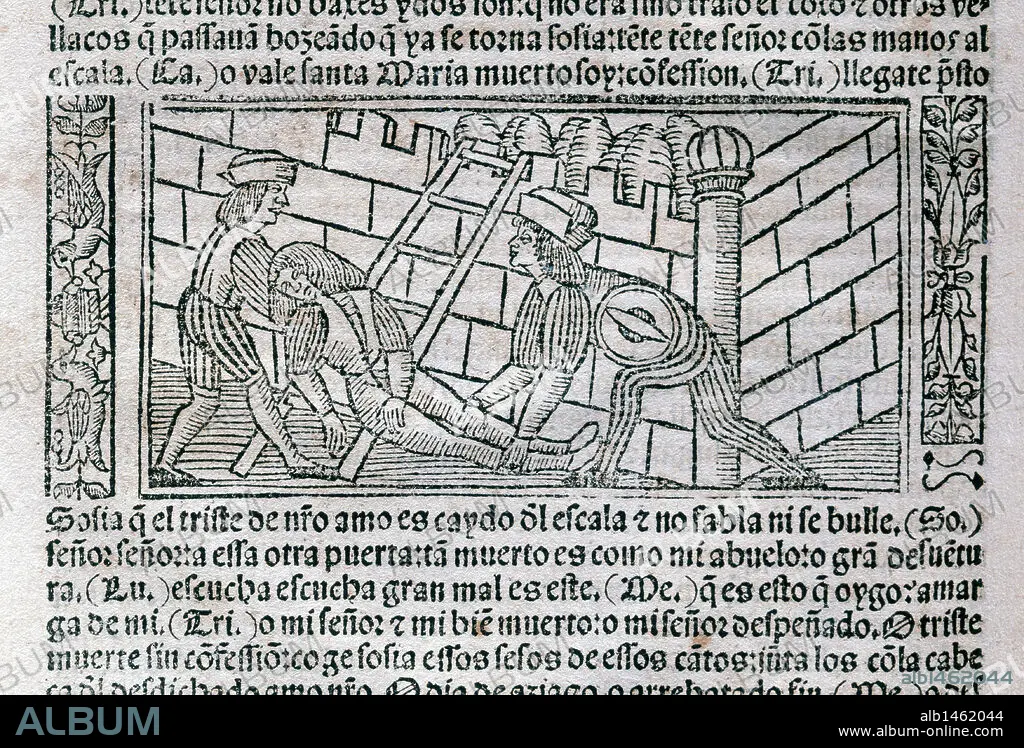 (Tri.) tete señor no baxes ydos son: q̃ no era sino traso el coxo ⁊ otros ve-
llacos q̃ passauã bozeãdo q̃ ya se torna sosia: tẽte tẽte señor cõlas manos al
escala. (Ca.) o vale santa Maria muerto soy: cõfession. (Tri.) llegate p̃sto
Sosia q̃ el triste de nr̃o amo es caydo d̃l escala ⁊ no fabla ni se bulle. (So.)
señor señor: a essa otra puerta: tã muerto es como mi abuelo: o grã desuẽtu
ra. (Lu.) escucha escucha gran mal es este. (Me.) q̃ es esto q̃ oygo: amar
ga de mi. (Tri.) o mi señor ⁊ mi biẽ muerto: o mi señor despeñado. O triste
muerte sin cõfessiõ: coge sosia essos sesos de essos cãtos: jũta los cõla cabe
ça d̃l desdichado amo nr̃o. O dia de aziago o arrebatado fin. (Me.)
ALBUM
alb1462044
alb1462044
www.album-online.com